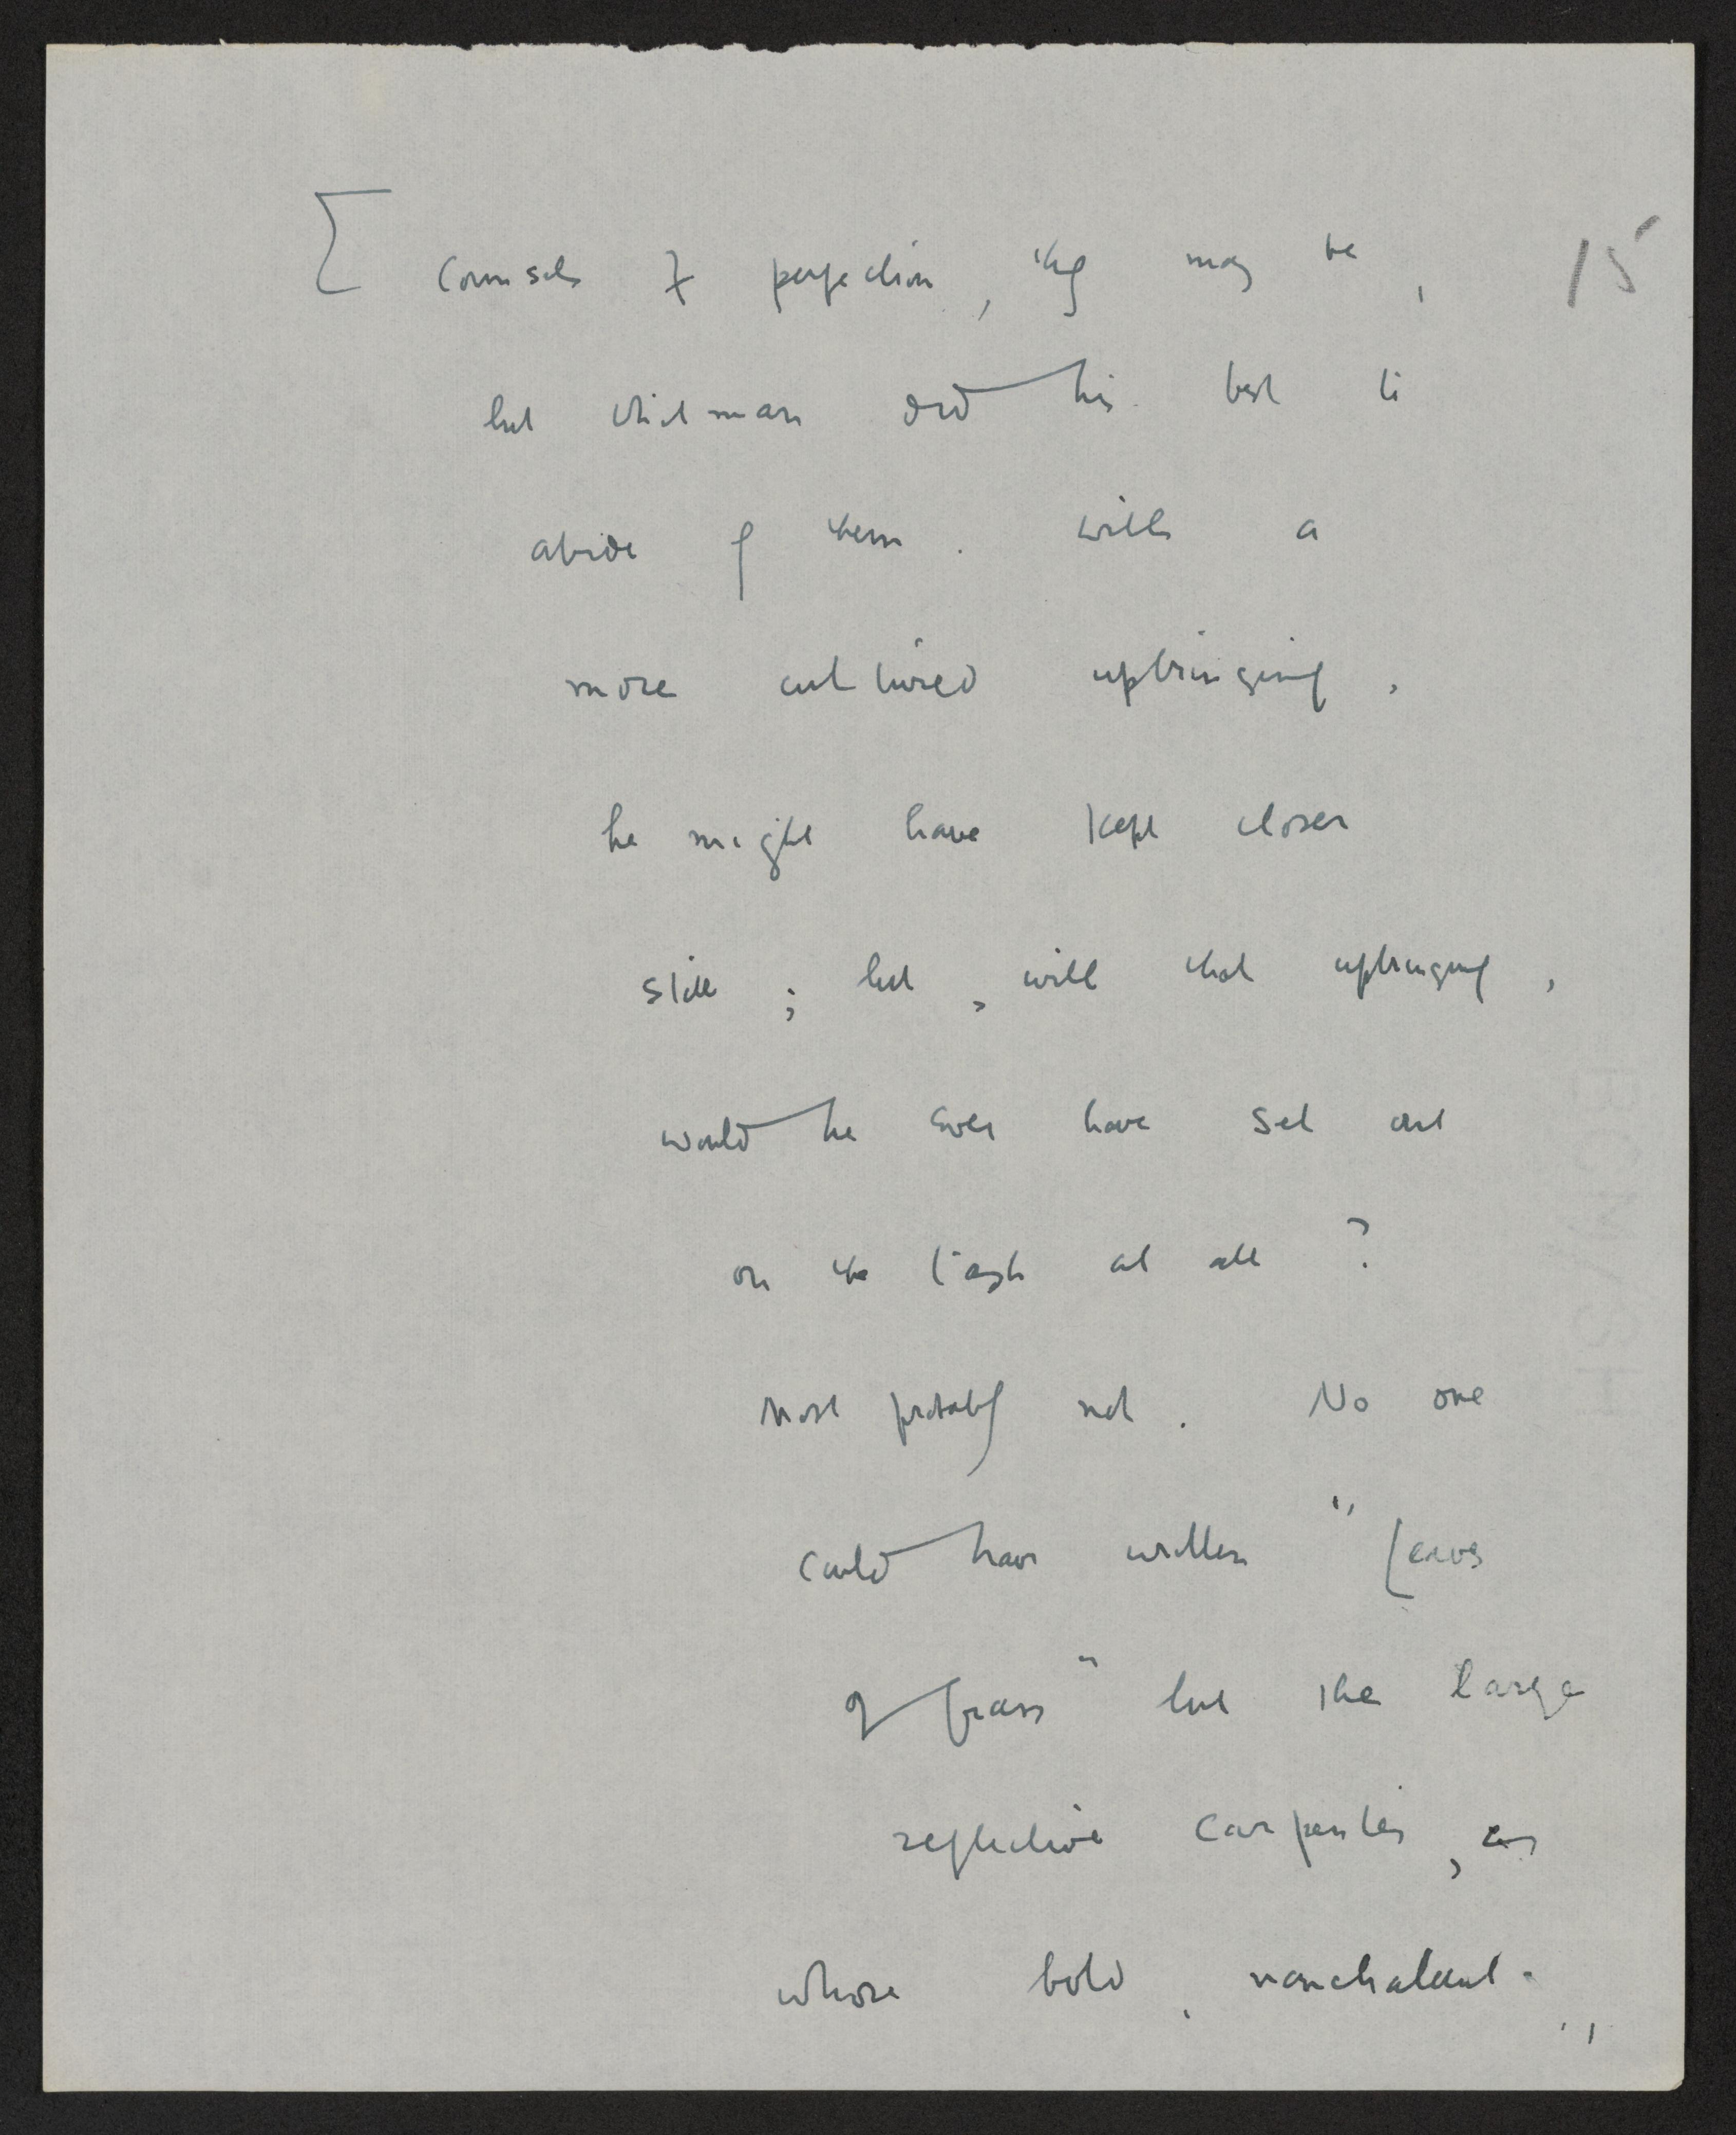 [ Counsels of perfection, they may be, 15
but Whitman did his best to
abide by them. With a
more cultured upbringing,
he might have kept closer
still; but, with that upbringing,
would he ever have set out
on the task at all?
Most probably not. No one
could have written "Leaves
of Grass" but the large
reflective carpenter,
whose bold, nonchalant